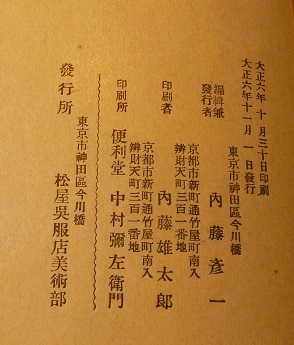 大正六年十月三十日印刷
大正六年十一月一日發行
東京市神田區今川橋
編輯兼發行者 內藤彥一
京都市新町通竹屋町南入
辨財天町三百一番地
印刷者 內藤雄太郎
京都市新町通竹屋町南入
辨財天町三百一番地
印刷所 便利堂 中村彌左衞門
東京市神田區今川橋
發行所 松屋吳服店美術部